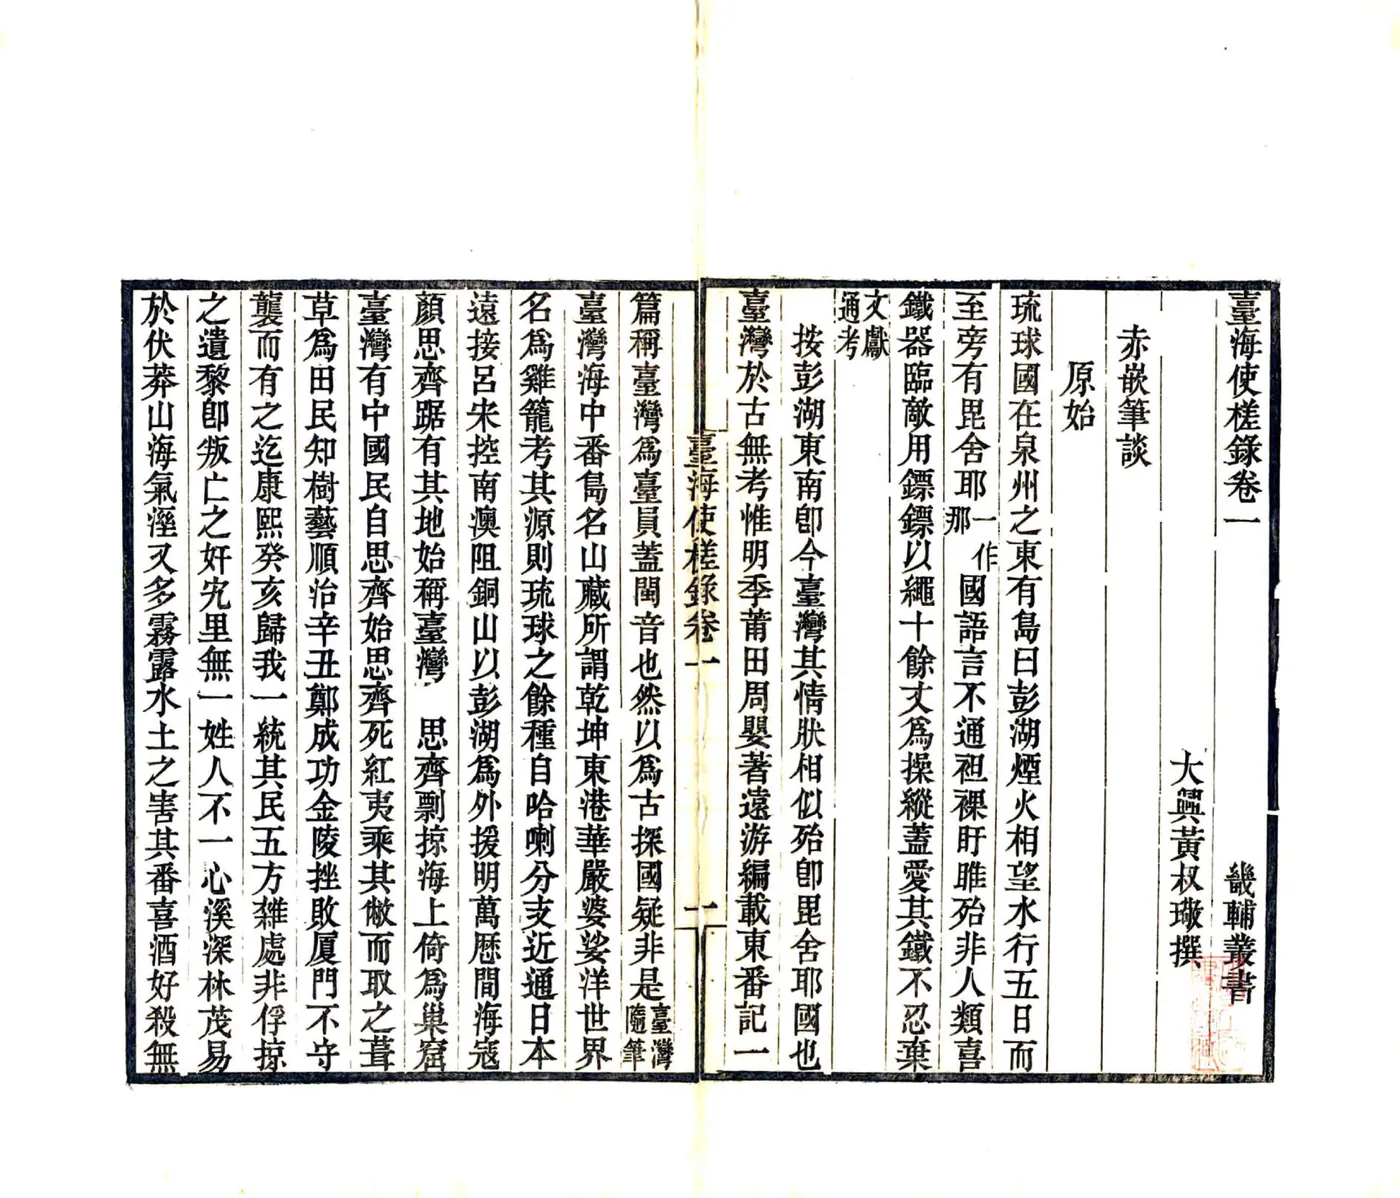 臺海使槎錄卷一
畿輔叢書
大興黃叔璥撰
赤嵌筆談
原始
琉球國在泉州之東有島曰彭湖煙火相望水行五日而
至旁有毘舍耶一作那國語言不通袒裸盱睢殆非人類喜
鐵器臨敵用鏢鏢以繩十餘丈爲操縱蓋愛其鐵不忍棄
文獻通考
按彭湖東南卽今臺灣其情狀相似殆卽毘舍耶國也
臺灣於古無考惟明季莆田周嬰著遠游編載東番記一
臺海使槎錄卷一
一
篇稱臺灣爲臺員蓋閩音也然以爲古探國疑非是臺灣隨筆
臺灣海中番島名山藏所謂乾坤東港華嚴婆娑洋世界
名爲雞籠考其源則琉球之餘種自哈喇分支近通日本
遠接呂宋控南澳阻銅山以彭湖爲外援明萬歷間海寇
顏思齊踞有其地始稱臺灣 思齊剽掠海上倚爲巢窟
臺灣有中國民自思齊始思齊死紅夷乘其敝而取之葺
草爲田民知樹藝順治辛丑鄭成功金陵挫敗厦門不守
襲而有之迄康熙癸亥歸我一統其民五方雜處非俘掠
之遺黎卽叛亡之奸宄里無一姓人不一心溪深林茂易
於伏莽山海氣溼又多霧露水土之害其番喜酒好殺無